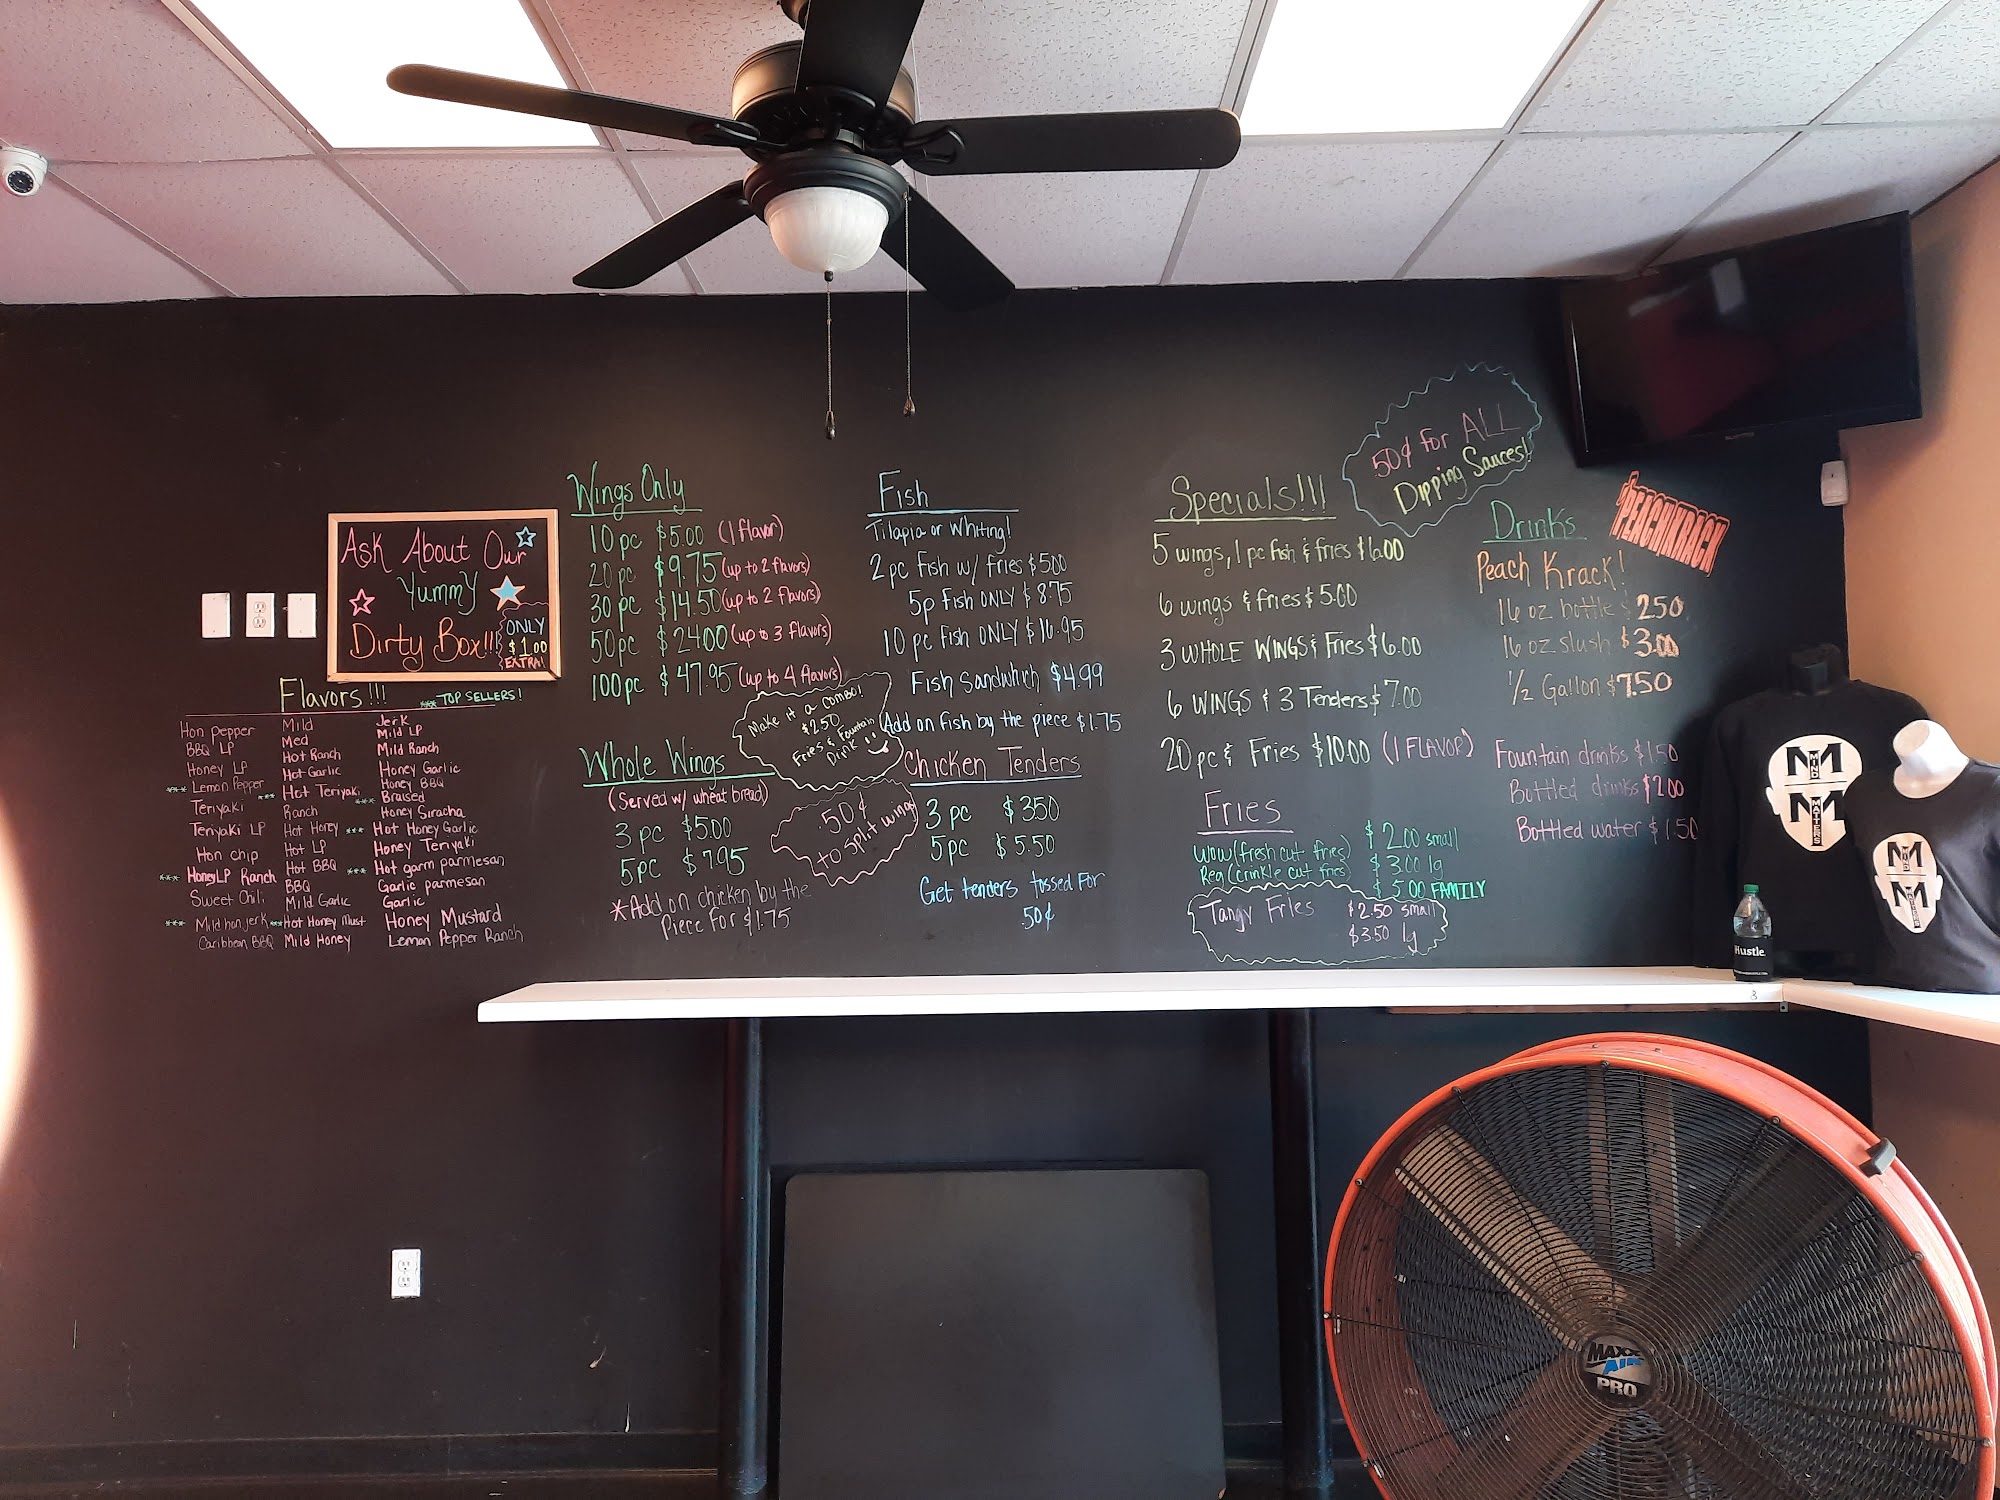 Ask About Our
Yummy
Dirty Box!!!
ONLY
$1.00
EXTRA!
Flavors!!!
*** TOP SELLERS!
Hon Pepper
BBQ LP
Honey LP
*** Lemon Pepper
Teriyaki
Teriyaki LP
Hon chip
*** Honey LP Ranch
Sweet Chili
*** Mild hon jerk
Caribbean BBQ
Mild
Med
Hot Ranch
Hot Garlic
*** Hot Teriyaki
Ranch
Hot Honey
Hot LP
Hot BBQ
BBQ
Mild Garlic
*** Hot Honey Must
Mild Honey
Jerk
Mild LP
Mild Ranch
Honey Garlic
Honey BBQ
*** Braised
Honey Siracha
*** Hot Honey Garlic
Honey Teriyaki
*** Hot garm parmesan
Garlic parmesan
Garlic
Honey Mustard
Lemon Pepper Ranch
Wings Only
10 pc $5.00 (1 flavor)
20 pc $9.75 (up to 2 flavors)
30 pc $14.50 (up to 2 flavors)
50 pc $24.00 (up to 3 flavors)
100 pc $47.95 (up to 4 flavors)
Make it a combo!
$2.50
Fries & Fountain
Drink!!
Whole Wings
(Served w/ wheat bread)
3 pc $5.00
5 pc $7.95
*Add on chicken by the
Piece for $1.75
.50¢
to split wings
Fish
Tilapia or Whiting!
2 pc Fish w/ fries $5.00
5p Fish ONLY $8.75
10 pc Fish ONLY $16.95
Fish Sandwhich $4.99
Add on fish by the piece $1.75
Chicken Tenders
3 pc $3.50
5 pc $5.50
Get tenders tossed for
.50¢
Specials!!!
50¢ for ALL
Dipping Sauces!
5 wings, 1 pc fish & fries $6.00
6 wings & fries $5.00
3 WHOLE WINGS & Fries $6.00
6 WINGS & 3 Tenders $7.00
20 pc & Fries $10.00 (1 FLAVOR)
Fries
Wow (fresh cut fries) $2.00 small
Reg (crinkle cut fries) $3.00 lg
$5.00 FAMILY
Tangy Fries $2.50 small
$3.50 lg
Drinks
#PEACHKRACK
Peach Krack!
16 oz bottle $2.50
16 oz slush $3.00
1/2 Gallon $7.50
Fountain drinks $1.50
Bottled drinks $2.00
Bottled water $1.50
M
MIND
M
MATTERS
M
MIND
M
MATTERS
Hustle.
MAXX
AIR
PRO